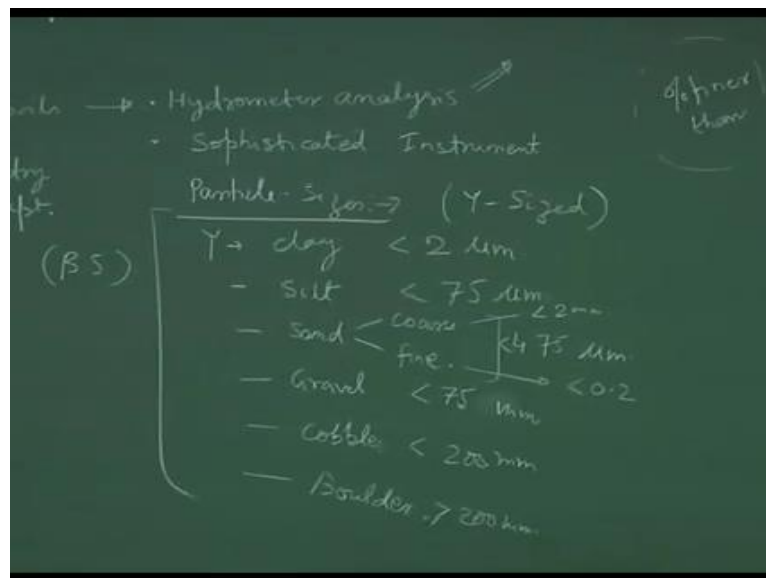 → · Hydrometer analysis
% finer than
· Sophisticated Instrument
dry
Particle-Sizes → (Y-Sized)
(BS)
Y → clay < 2 µm
- Silt < 75 µm
- Sand coarse < 2 mm
fine. < 0.2
< 4 75 µm
- Gravel < 75 mm
- Cobble < 200 mm
- Boulder > 200 mm